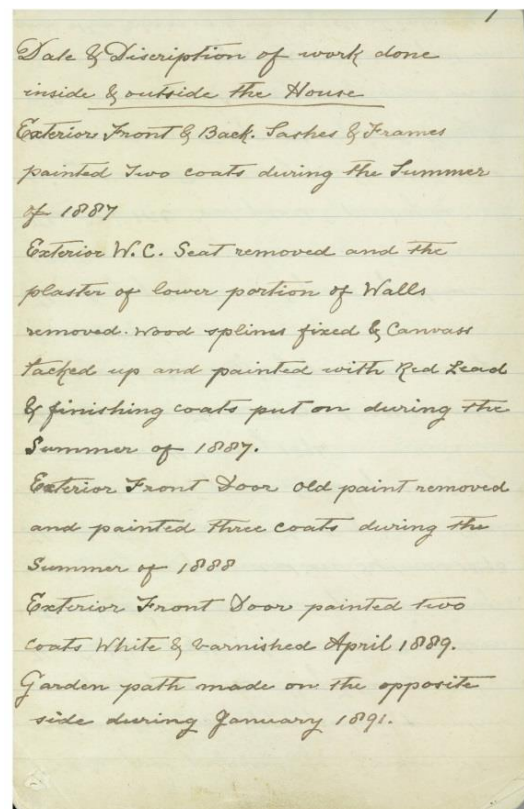 1
Date & Discription of work done
inside & outside the House
Exterior Front & Back. Sashes & Frames
painted Two coats during the Summer
of 1887
Exterior W.C. Seat removed and the
plaster of lower portion of Walls
removed. Wood splines fixed & Canvass
tacked up and painted with Red Lead
& finishing coats put on during the
Summer of 1887.
Exterior Front Door old paint removed
and painted three coats during the
Summer of 1888
Exterior Front Door painted two
coats White & varnished April 1889.
Garden path made on the opposite
side during January 1891.